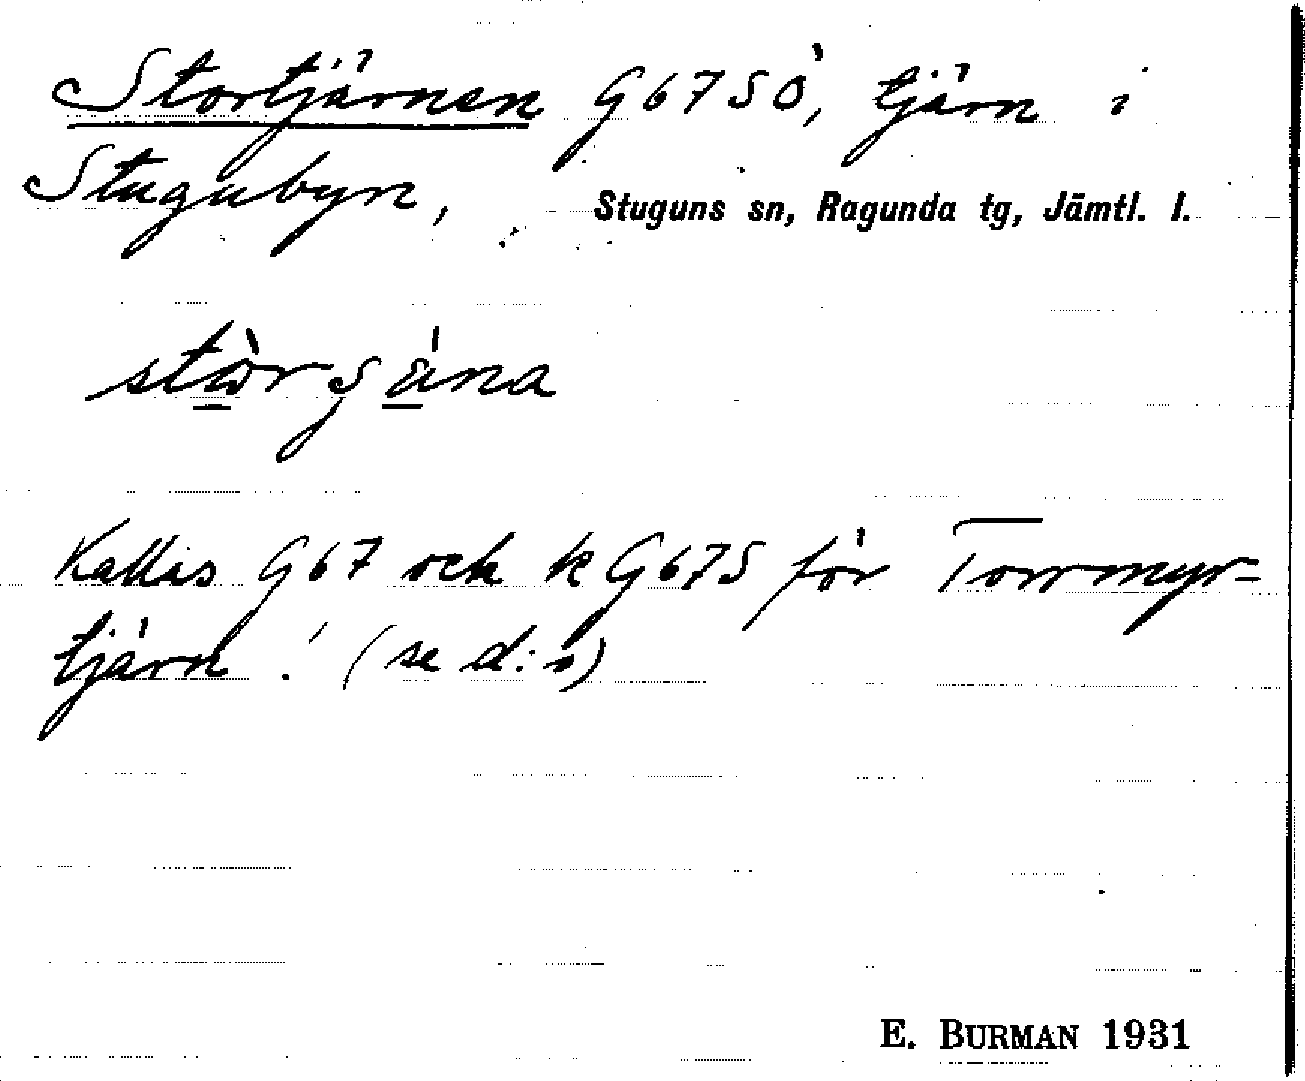 Stortjärnen G67SÖ, tjärn i
Stugubyn, Stuguns sn, Ragunda tg, Jämtl. l.
Kallas G67 och k G67S för Torrmyr-
tjärn! (se d:o)
E. BURMAN 1931